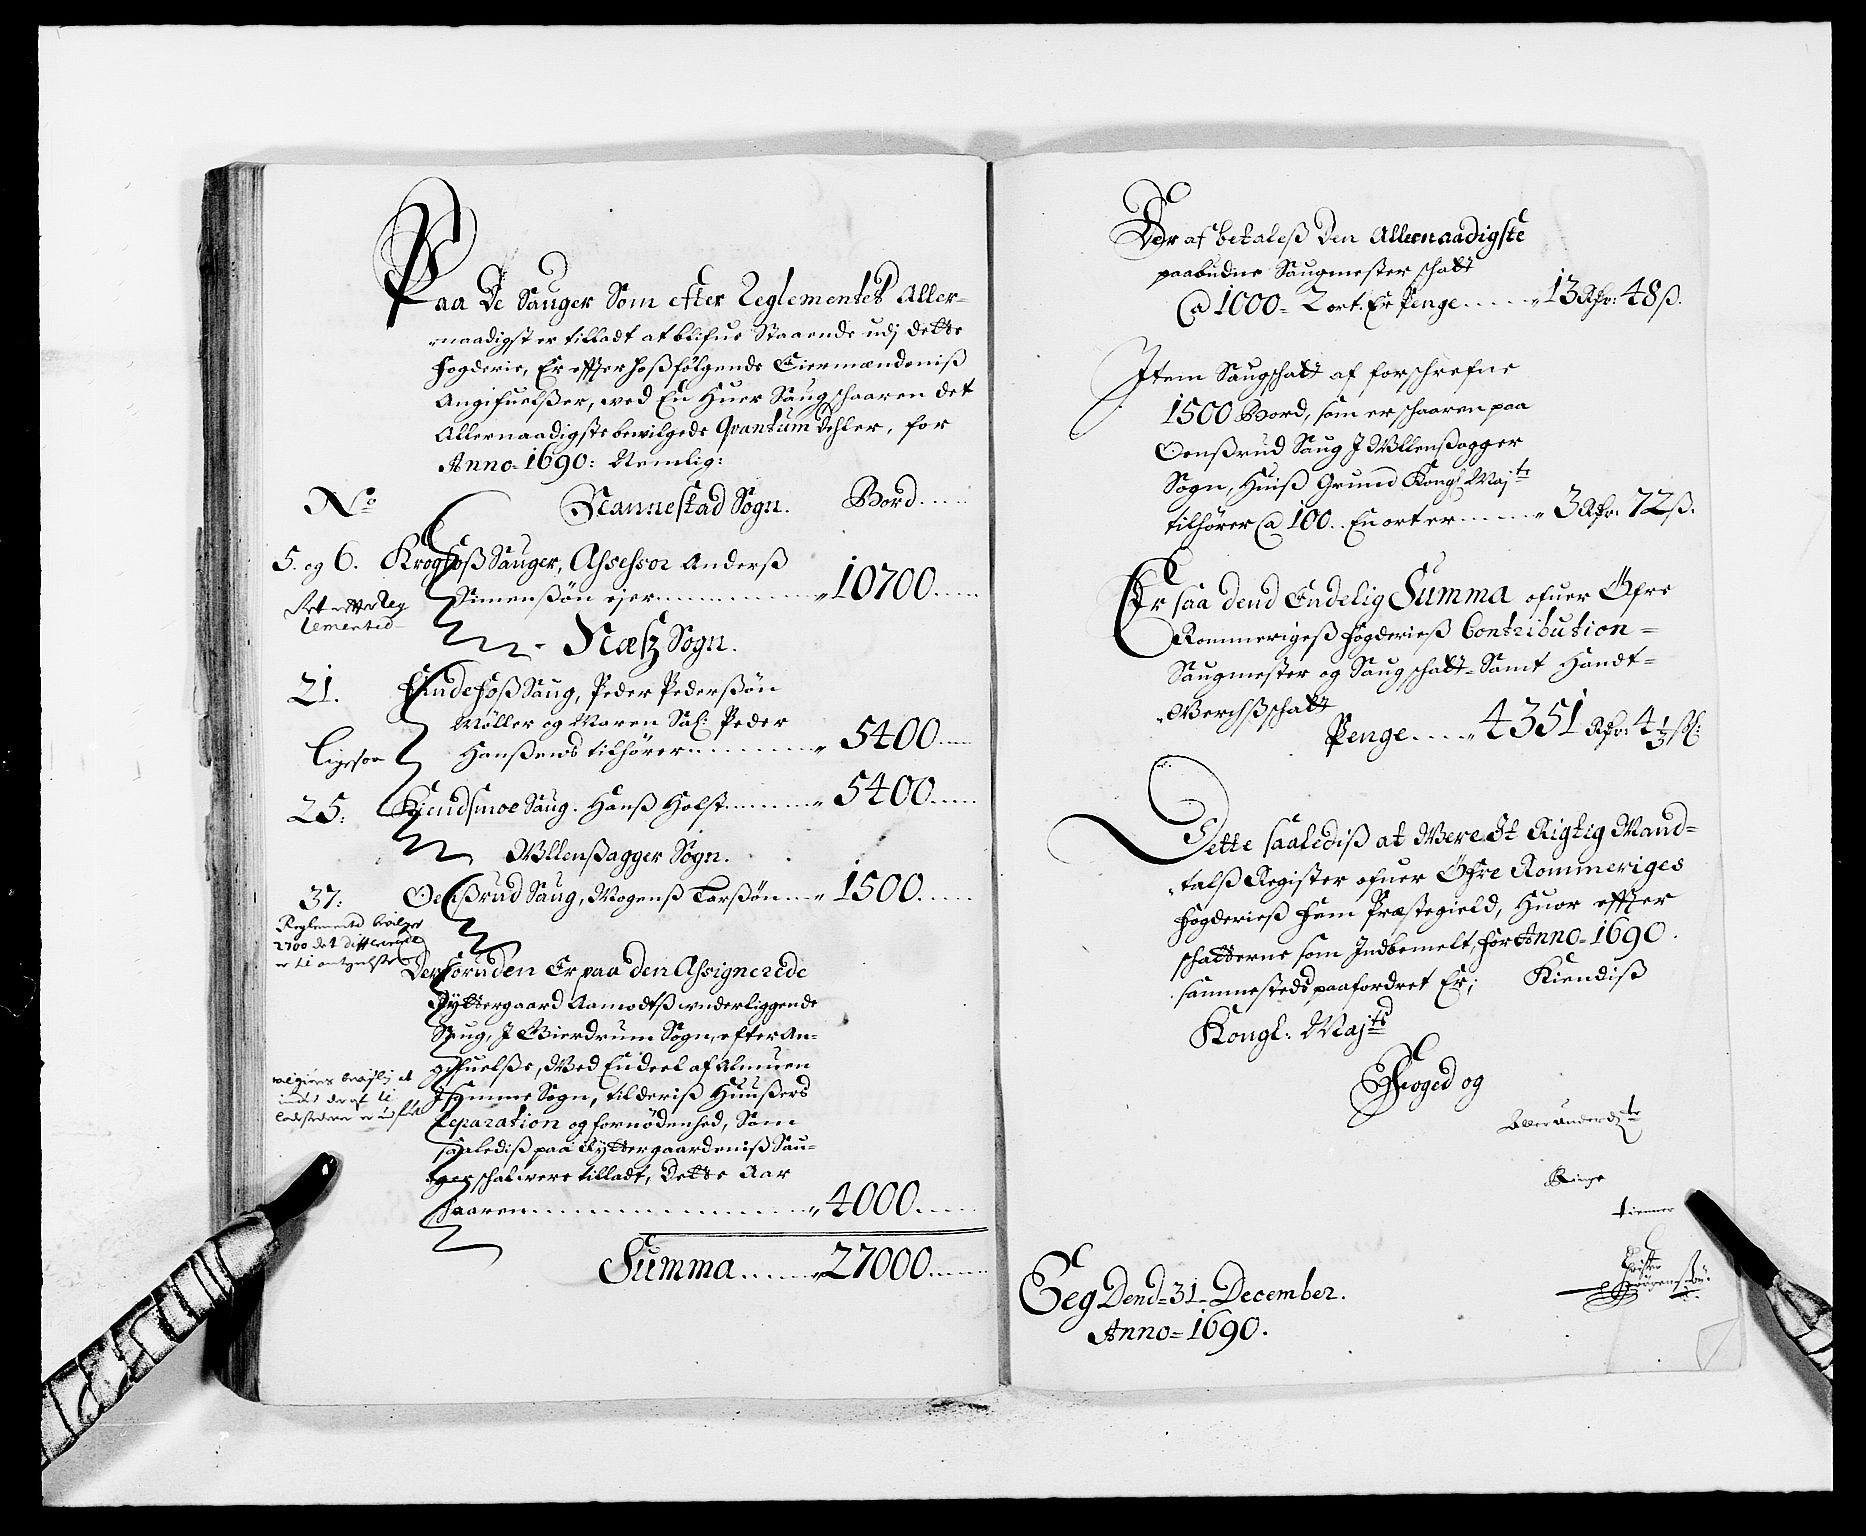 Paa De Sauger Som efter Reglementet Aller-
naadigst er tilladt at blifue Staaende udj dette
fogderie, Er effter hoßfølgende Eiermændeniß
Angifuelßer, ved En Huer Saug schaaren det
Allernaadigste bewilgede Qvantum Dehler, for
Anno=1690: Nemlig:
No Nannestad Sogn. Bord.....
5. og 6. Krogfoß Sauger, Assessor Anderß
Simenßøn ejer............. 10700.....
Ret effter Reg
lemented
Næsz Sogn.
21. Fundefoß Saug, Peder Pederßøn
Møller og Maren Sal: Peder
Hanßens tilhører.......... 5400....
Ligesaa
25. Saug. Hanß Holst......... 5400.....
Wllenßagger Sogn.
37: Oenßrud Saug, Mogenß Larßøn... 1500......
Reglemented
2700 det
er
Der foruden Er paa den Assignerede
Ryttergaard Aamodtß underliggende
Saug, J Gierdrum Sogn, efter An-
gifuelße, Med En deel af Almuen
J samme Sogn, til deriß Huußerß
Reparation og fornødenhed, Som
saalediß paa Ryttergaardeniß Sau-
ger schal were tilladt, Dette Aar
schaaren........................ 4000......
Summa....... 27000......
Der af betaleß den Allernaadigste
paabudne Saugmester schatt
@ 1000= 2 ort. Er Penge...... 13 Rdr: 48 ß.
Jtem Saugschatt af forschrefne
1500 Bord, som er schaaren paa
Oenßrud Saug J Wllenßagger
Sogn, Huiß Grund Kongl Majts
tilhører @ 100.. En ort er...... 3 Rdr: 72 ß.
Er saa dend Endelig Summa ofuer Øfre
Rommerigeß fogderieß Contribution=
Saugmester og Saugschatt= Samt Handt=
Werchßschatt
Penge..... 4351 Rdr: 4 1/2 ßl:
Dette saalediß at Were Et Rigtig Mand=
talß Register ofuer Øfre Rommeriges
fogderieß fem Præstegield, Huor effter
schatterne som Jndbemelt, for Anno=1690.
sammesteds paafordret Er; Kiendiß
Kongl: Majts
Foged og
Allerunderdte
Ringe
tienner
Seg Dend=31= December.
Anno=1690.